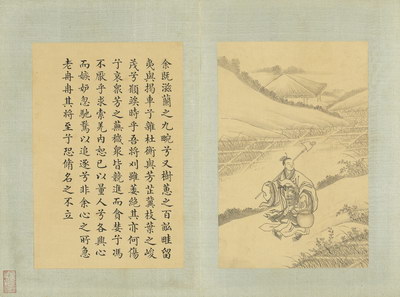 余既滋蘭之九畹兮又樹蕙之百畝畦留
夷與揭車兮雜杜衡與芳芷冀枝葉之峻
茂兮願竢時乎吾將刈雖萎絕其亦何傷
兮哀衆芳之蕪穢衆皆競進而貪婪兮馮
不猒乎求索羌內恕己以量人兮各興心
而嫉妒忽馳騖以追逐兮非余心之所急
老冉冉其將至兮恐脩名之不立